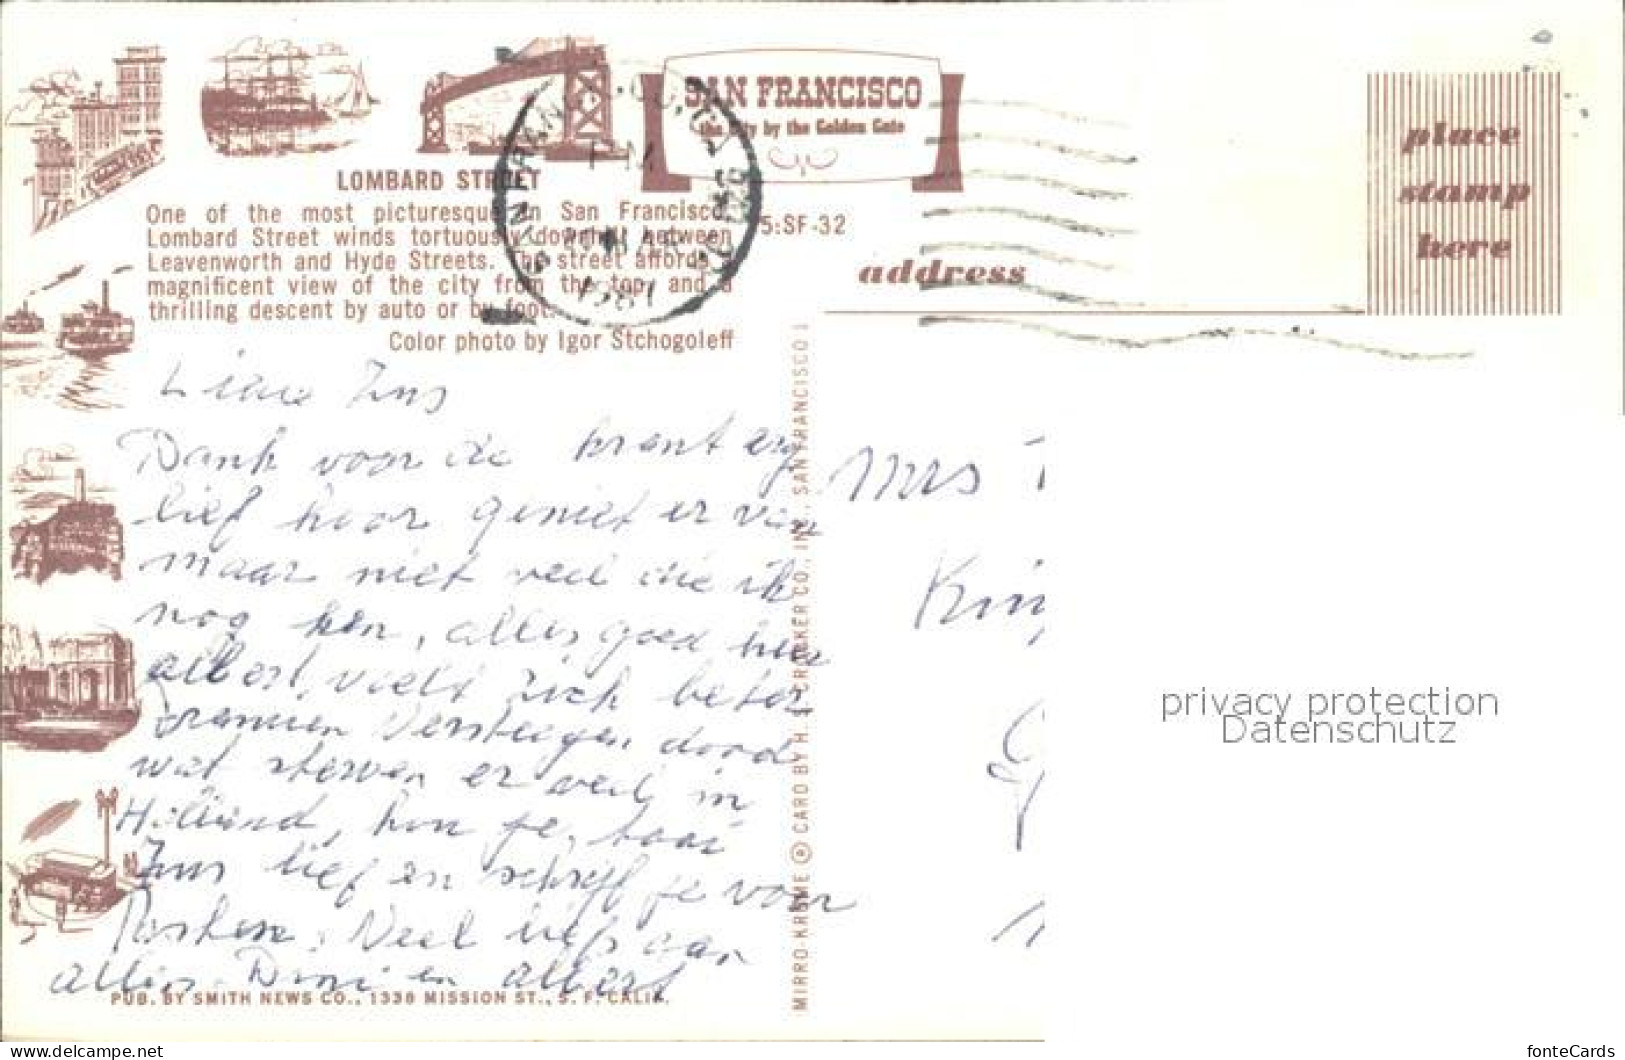 SAN FRANCISCO
the City by the Golden Gate
LOMBARD STREET
One of the most picturesque in San Francisco,
Lombard Street winds tortuously downhill between
Leavenworth and Hyde Streets. The street affords a
magnificent view of the city from the top, and a
thrilling descent by auto or by foot.
Color photo by Igor Stchogoleff
5:SF-32
address
place
stamp
here
PM
1961
Lieve Zus
Dank voor de krant erg
lief hoor geniet er van
maar niet veel die ik
nog ken, alles goed hier
albert, voelt zich beter
Versteegen dood
wat sterven er veel in
Holland, hou je, taai
Zus lief en schrijf je voor
Pashen. Veel liefs aan
allen. Dini en albert
PUB. BY SMITH NEWS CO., 1338 MISSION ST., S. F. CALIF.
MIRRO-KROME ® CARD BY H. S. CROCKER CO., INC., SAN FRANCISCO 1
Mrs
privacy protection
Datenschutz
https://www.delcampe.net
fonteCards